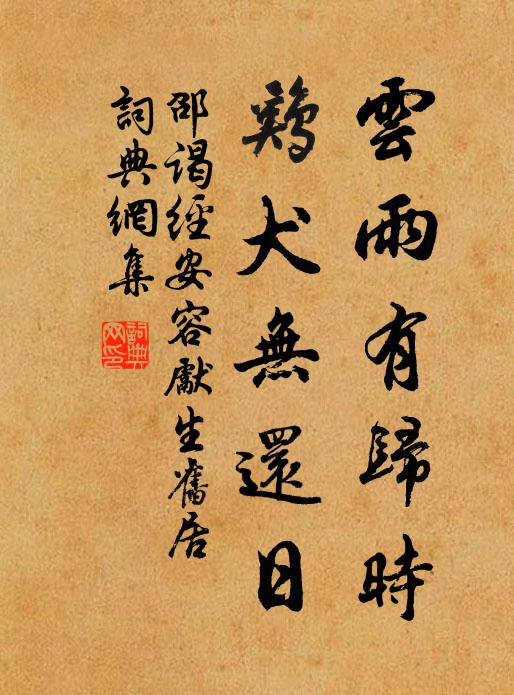 雲雨有歸時
鷄犬無還日
邵謁經安容獻生舊居
詞典網集
詞典网印